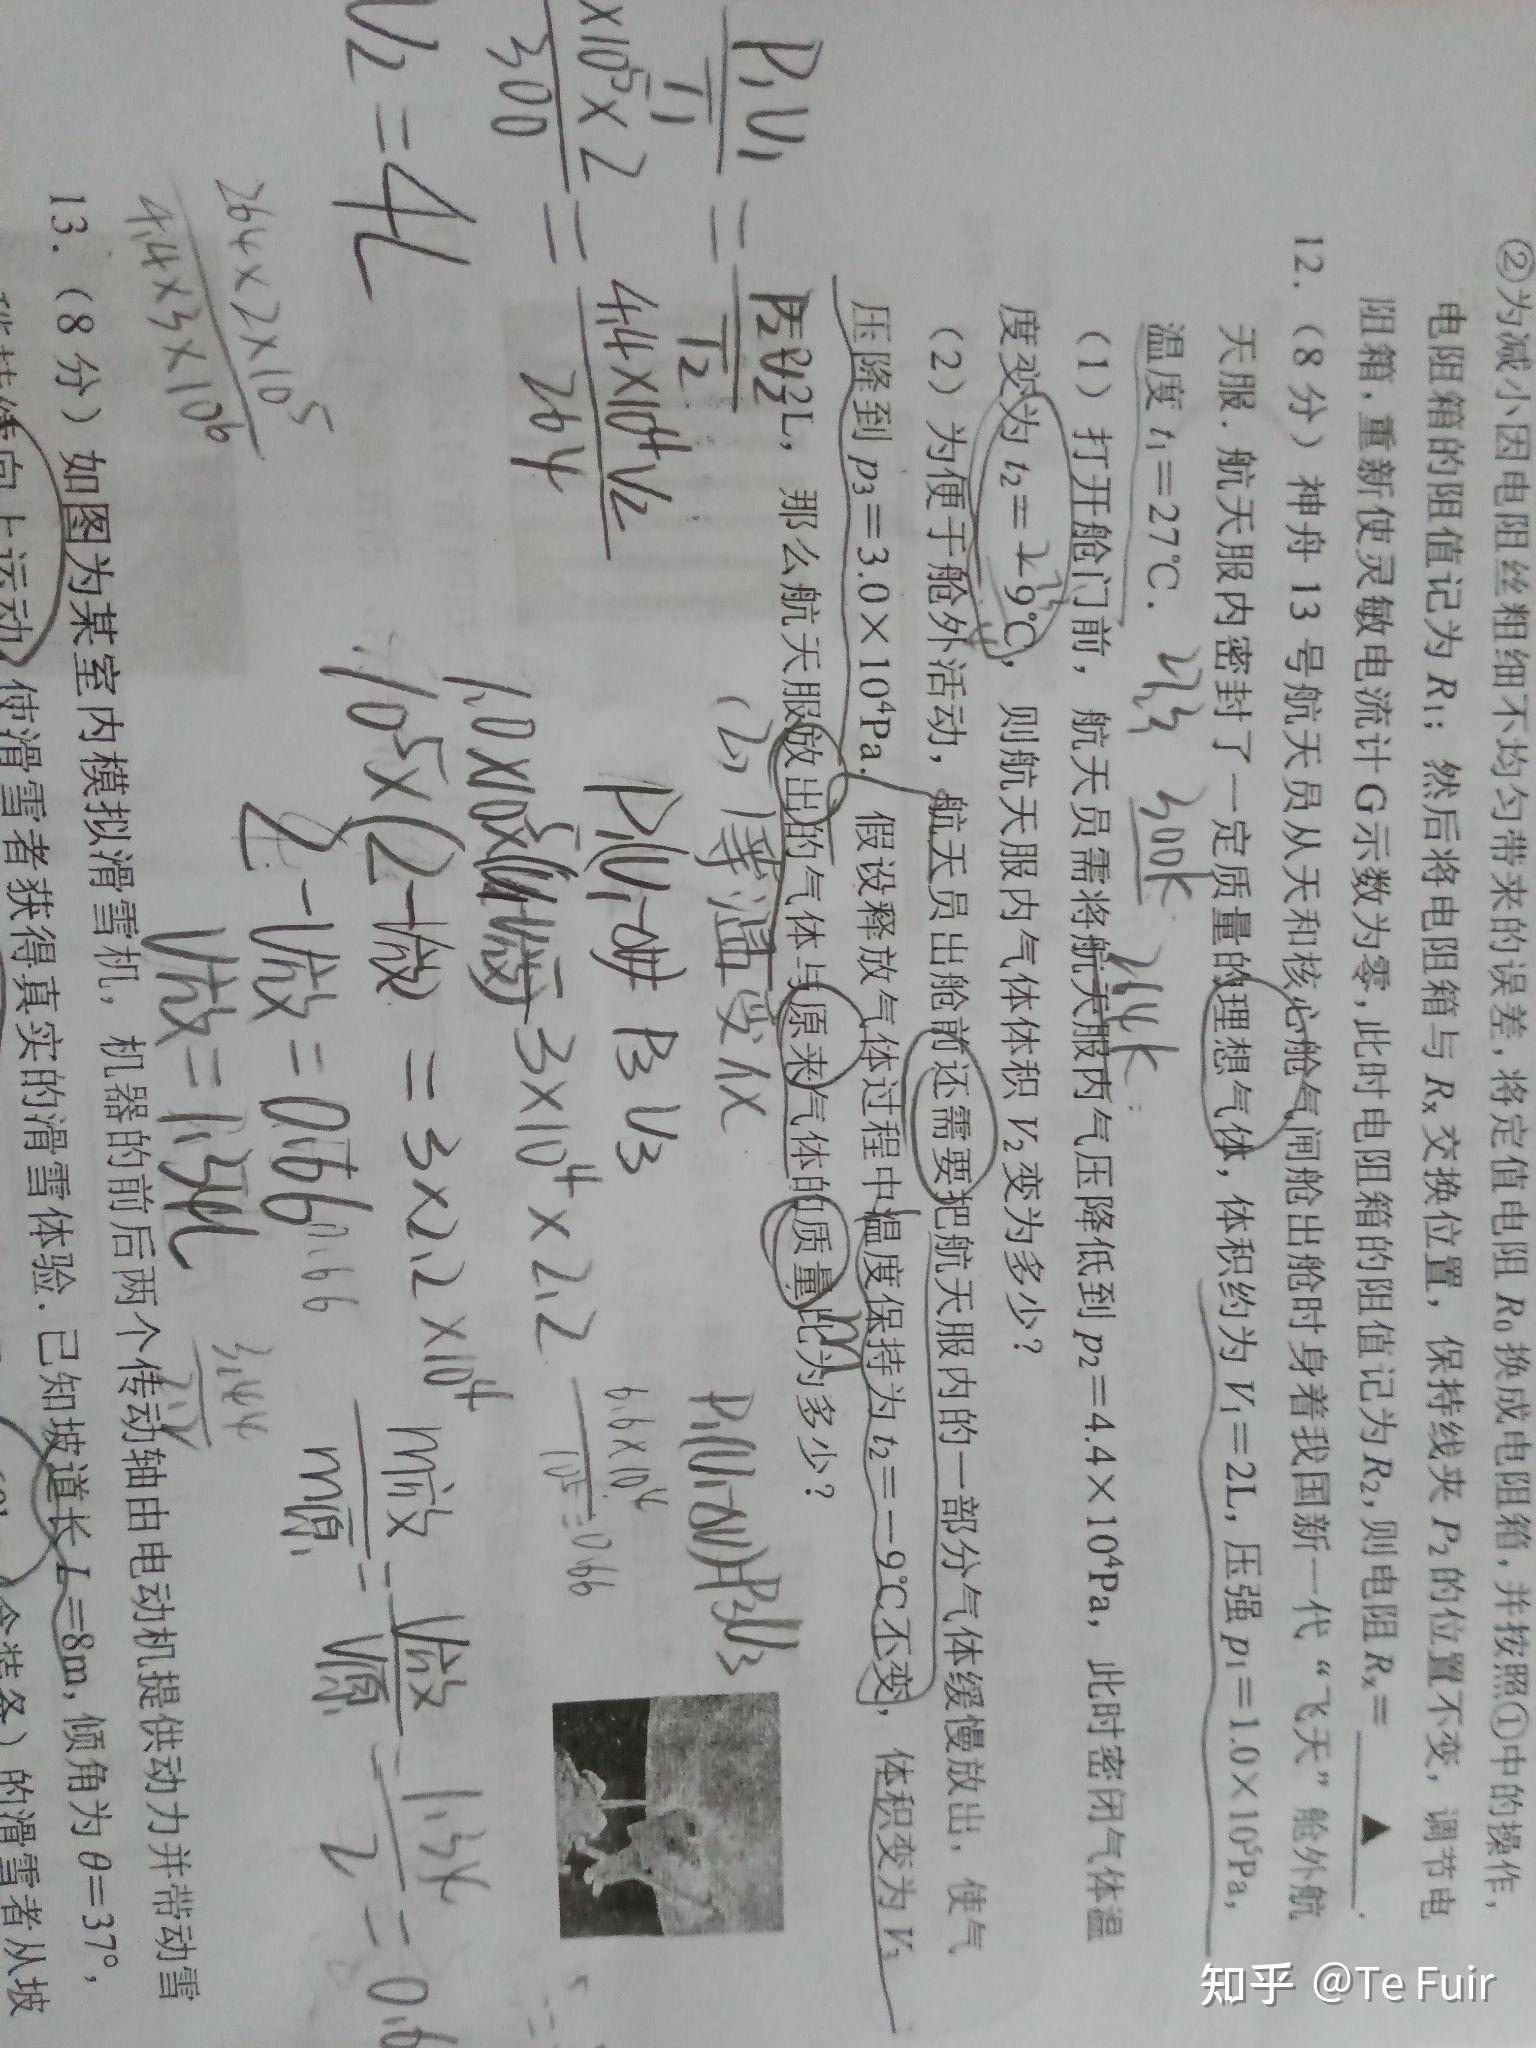 ②为减小因电阻丝粗细不均匀带来的误差,将定值电阻R₀换成电阻箱,并按照①中的操作,
电阻箱的阻值记为R₁;然后将电阻箱与Rₓ交换位置,保持线夹P₂的位置不变,调节电
阻箱,重新使灵敏电流计G示数为零,此时电阻箱的阻值记为R₂,则电阻Rₓ=▲.
12.(8分)神舟13号航天员从天和核心舱气闸舱出舱时身着我国新一代“飞天”舱外航
天服.航天服内密封了一定质量的理想气体,体积约为V₁=2L,压强p₁=1.0×10⁵Pa,
温度t₁=27℃.
300k
264k
(1)打开舱门前,航天员需将航天服内气压降低到p₂=4.4×10⁴Pa,此时密闭气体温
度变为t₂=-9℃,则航天服内气体体积V₂变为多少?
(2)为便于舱外活动,航天员出舱前还需要把航天服内的一部分气体缓慢放出,使气
压降到p₃=3.0×10⁴Pa.假设释放气体过程中温度保持为t₂=-9℃不变,体积变为V₃
2L,那么航天服放出的气体与原来气体的质量比为多少?
P₁V₁/T₁=P₂V₂/T₂
×10⁵×2/300=4.4×10⁴V₂/264
V₂=4L
264×2×10⁵
4.4×3×10⁶
(2)等温变化
P₃V₃
3×10⁴×2.2
10⁵×(2-V放)=3×2.2×10⁴
2-V放=0.66
V放=1.34L
6.6×10⁴/10⁵=0.66
m放/m原=V放/V原=1.34/2=0.6
13.(8分)如图为某室内模拟滑雪机,机器的前后两个传动轴由电动机提供动力并带动雪
向上运动,使滑雪者获得真实的滑雪体验.已知坡道长L=8m,倾角为θ=37°,
的滑雪者从坡
知乎 @Te Fuir